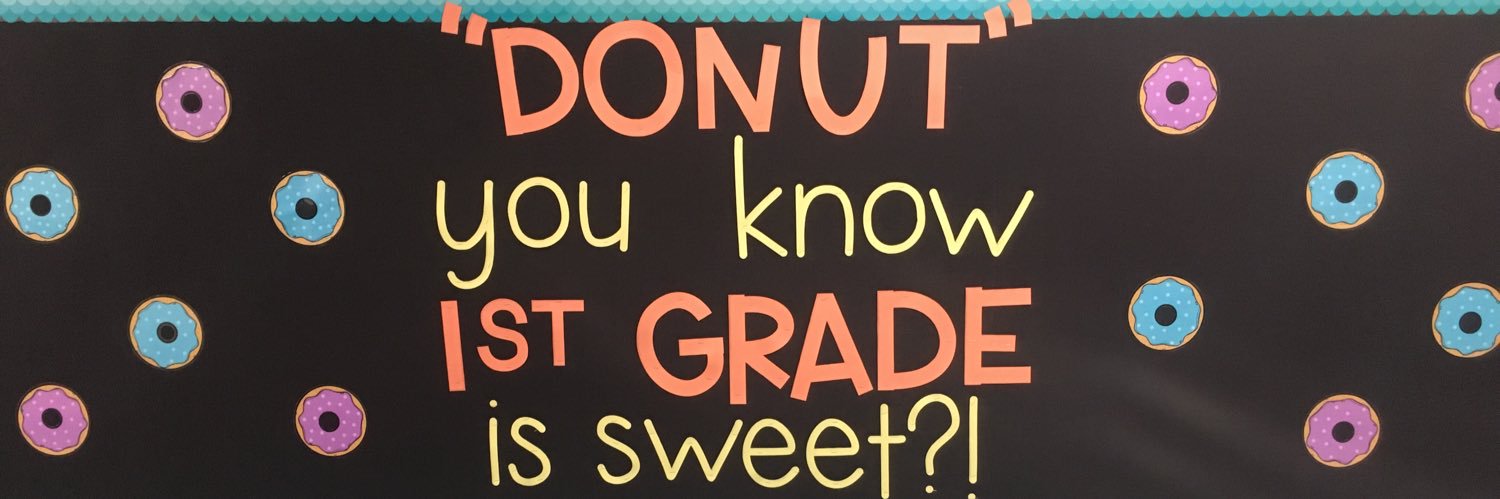 "DONUT"
you know
1ST GRADE
is sweet?!